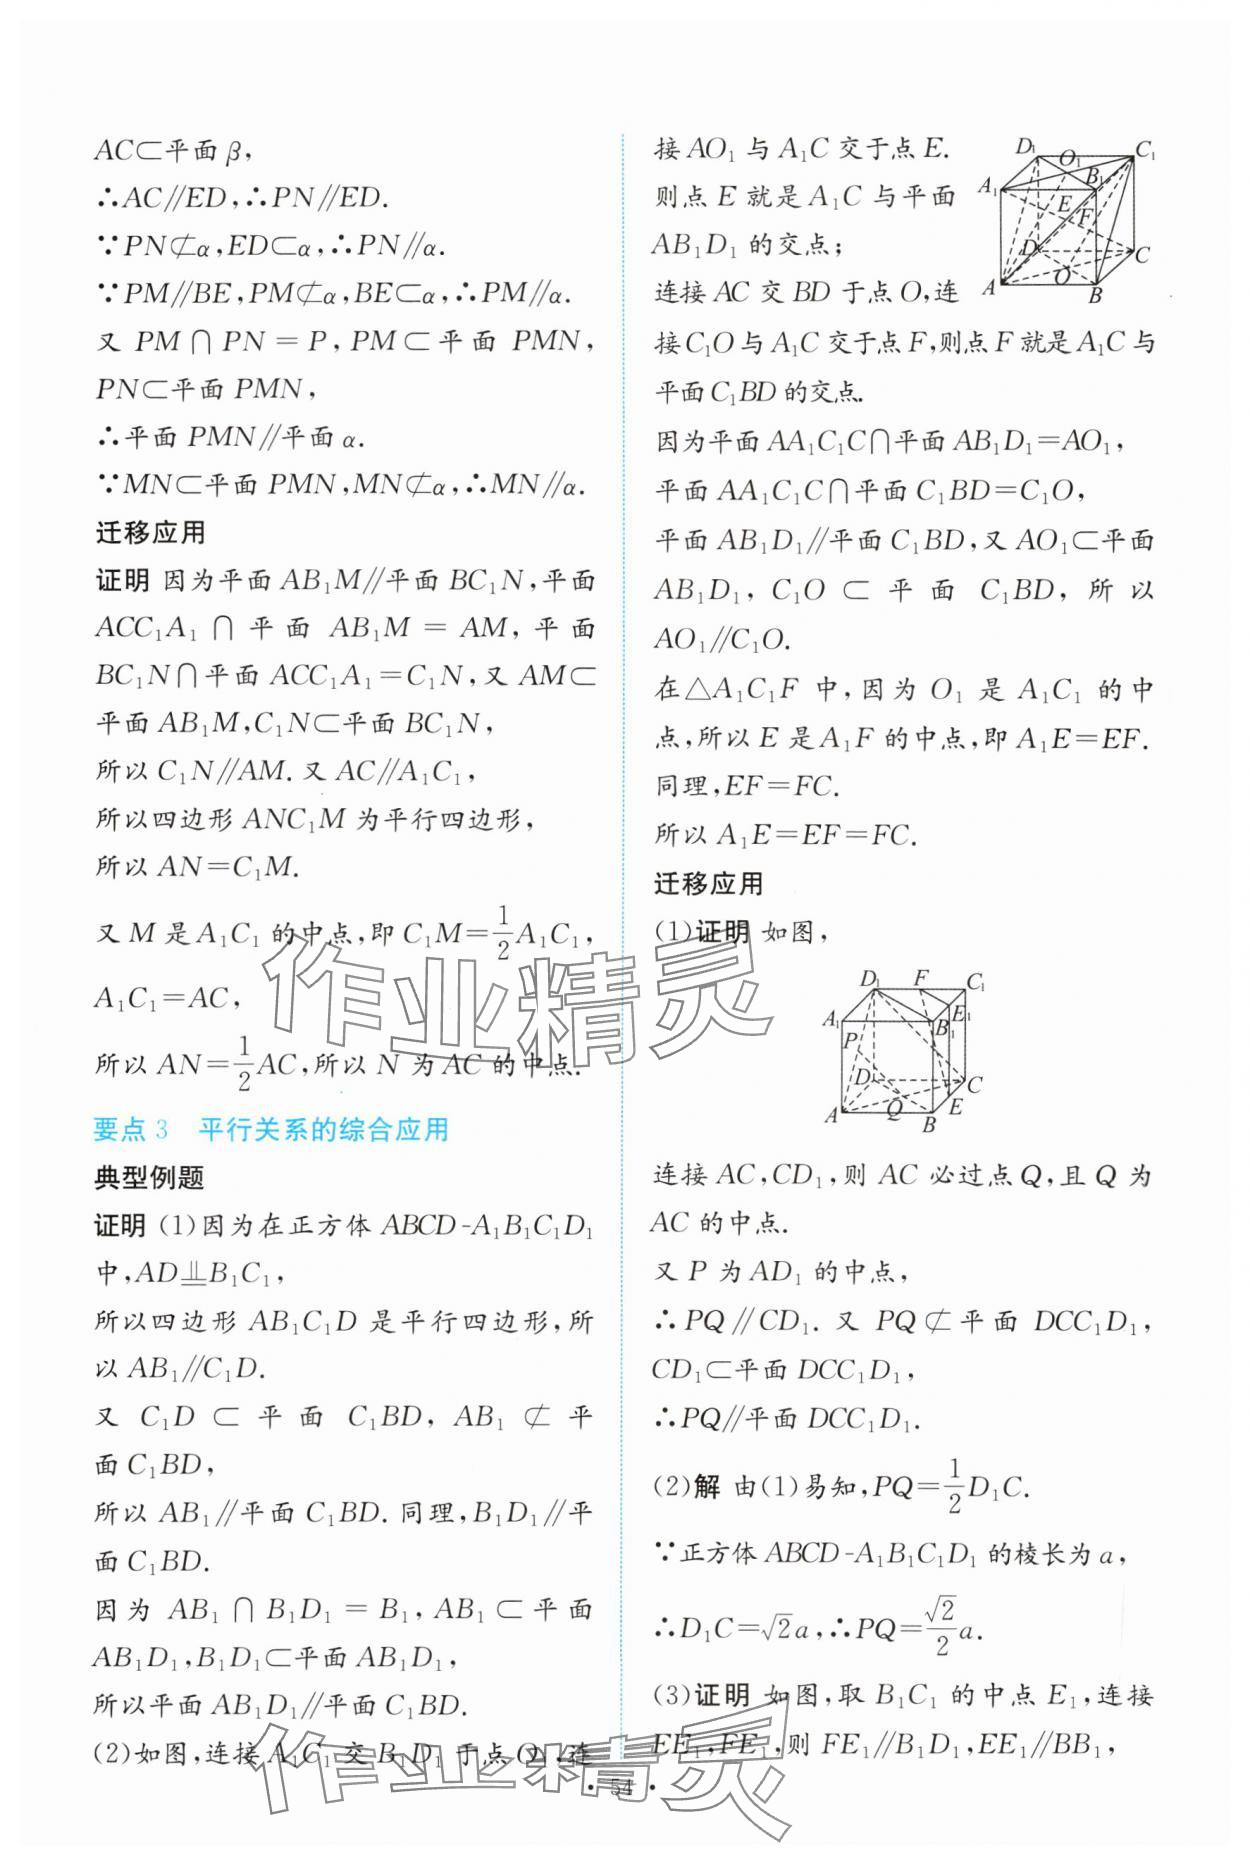 AC⊂平面 β,
∴AC∥ED,∴PN∥ED.
∵PN⊄α,ED⊂α,∴PN∥α.
∵PM∥BE,PM⊄α,BE⊂α,∴PM∥α.
又 PM∩PN=P,PM⊂平面 PMN,
PN⊂平面 PMN,
∴平面 PMN∥平面 α.
∵MN⊂平面 PMN,MN⊄α,∴MN∥α.
迁移应用
证明 因为平面 AB₁M∥平面 BC₁N,平面
ACC₁A₁∩平面 AB₁M=AM,平面
BC₁N∩平面 ACC₁A₁=C₁N,又 AM⊂
平面 AB₁M,C₁N⊂平面 BC₁N,
所以 C₁N∥AM.又 AC∥A₁C₁,
所以四边形 ANC₁M 为平行四边形,
所以 AN=C₁M.
又 M 是 A₁C₁ 的中点,即 C₁M=1/2A₁C₁,
A₁C₁=AC,
所以 AN=1/2AC,所以 N 为 AC 的中点.
要点 3 平行关系的综合应用
典型例题
证明 (1)因为在正方体 ABCD-A₁B₁C₁D₁
中,AD⊥∥B₁C₁,
所以四边形 AB₁C₁D 是平行四边形,所
以 AB₁∥C₁D.
又 C₁D⊂平面 C₁BD,AB₁⊄平
面 C₁BD,
所以 AB₁∥平面 C₁BD.同理,B₁D₁∥平
面 C₁BD.
因为 AB₁∩B₁D₁=B₁,AB₁⊂平面
AB₁D₁,B₁D₁⊂平面 AB₁D₁,
所以平面 AB₁D₁∥平面 C₁BD.
(2)如图,连接 A₁C₁ 交 B₁D₁ 于点 O₁,连
接 AO₁ 与 A₁C 交于点 E.
则点 E 就是 A₁C 与平面
AB₁D₁ 的交点;
连接 AC 交 BD 于点 O,连
D₁ O₁ C₁
A₁ B₁
E F
D C
O
A B
接 C₁O 与 A₁C 交于点 F,则点 F 就是 A₁C 与
平面 C₁BD 的交点.
因为平面 AA₁C₁C∩平面 AB₁D₁=AO₁,
平面 AA₁C₁C∩平面 C₁BD=C₁O,
平面 AB₁D₁∥平面 C₁BD,又 AO₁⊂平面
AB₁D₁,C₁O⊂平面 C₁BD,所以
AO₁∥C₁O.
在△A₁C₁F 中,因为 O₁ 是 A₁C₁ 的中
点,所以 E 是 A₁F 的中点,即 A₁E=EF.
同理,EF=FC.
所以 A₁E=EF=FC.
迁移应用
(1)证明 如图,
D₁ F C₁
A₁ B₁ E₁
P
D C
A Q B E
连接 AC,CD₁,则 AC 必过点 Q,且 Q 为
AC 的中点.
又 P 为 AD₁ 的中点,
∴PQ∥CD₁.又 PQ⊄平面 DCC₁D₁,
CD₁⊂平面 DCC₁D₁,
∴PQ∥平面 DCC₁D₁.
(2)解 由(1)易知,PQ=1/2D₁C.
∵正方体 ABCD-A₁B₁C₁D₁ 的棱长为 a,
∴D₁C=√2a,∴PQ=√2/2a.
(3)证明 如图,取 B₁C₁ 的中点 E₁,连接
EE₁,FE₁,则 FE₁∥B₁D₁,EE₁∥BB₁,
· 54 ·
作业精灵
作业精灵